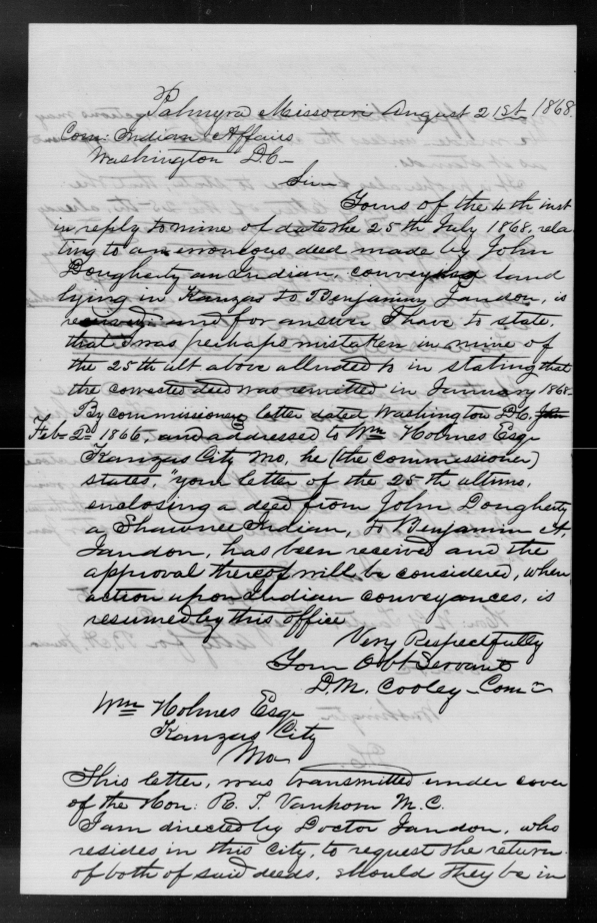 Palmyra Missouri August 21st 1868.
Com: Indian Affairs
Washington D.C-
Sir-
Yours of the 4th inst
in reply to mine of date the 25th July 1868, rela
ting to an erroneous deed made by John
Dougherty an Indian, conveying land
lying in Kanzas to Benjamin Jandon, is
received: and for answer I have to state,
that I was perhaps mistaken in mine of
the 25th ult above alluded to in stating that
the corrected deed was remitted in January 1868-
By commissioners letter dated Washington D.C.
Feb- 2d 1866, and addressed to Wm Holmes Esqr
Kanzas City Mo, he (the commissioner)
states, "your letter of the 25th ultimo,
enclosing a deed from John Dougherty
a Shawnee Indian, to Benjamin A,
Jandon, has been received and the
approval thereof will be considered, when
action upon Indian conveyances, is
resumed by this office
Very Respectfully
Your Obt Servant
D.M. Cooley- Comr
Wm Holmes Esqr
Kanzas City
Mo
This letter, was transmitted under cover
of the Hon: R. T. Vanhorn M.C.
I am directed by Doctor Jandon, who
resides in this City, to request the return
of both of said deeds, should they be in